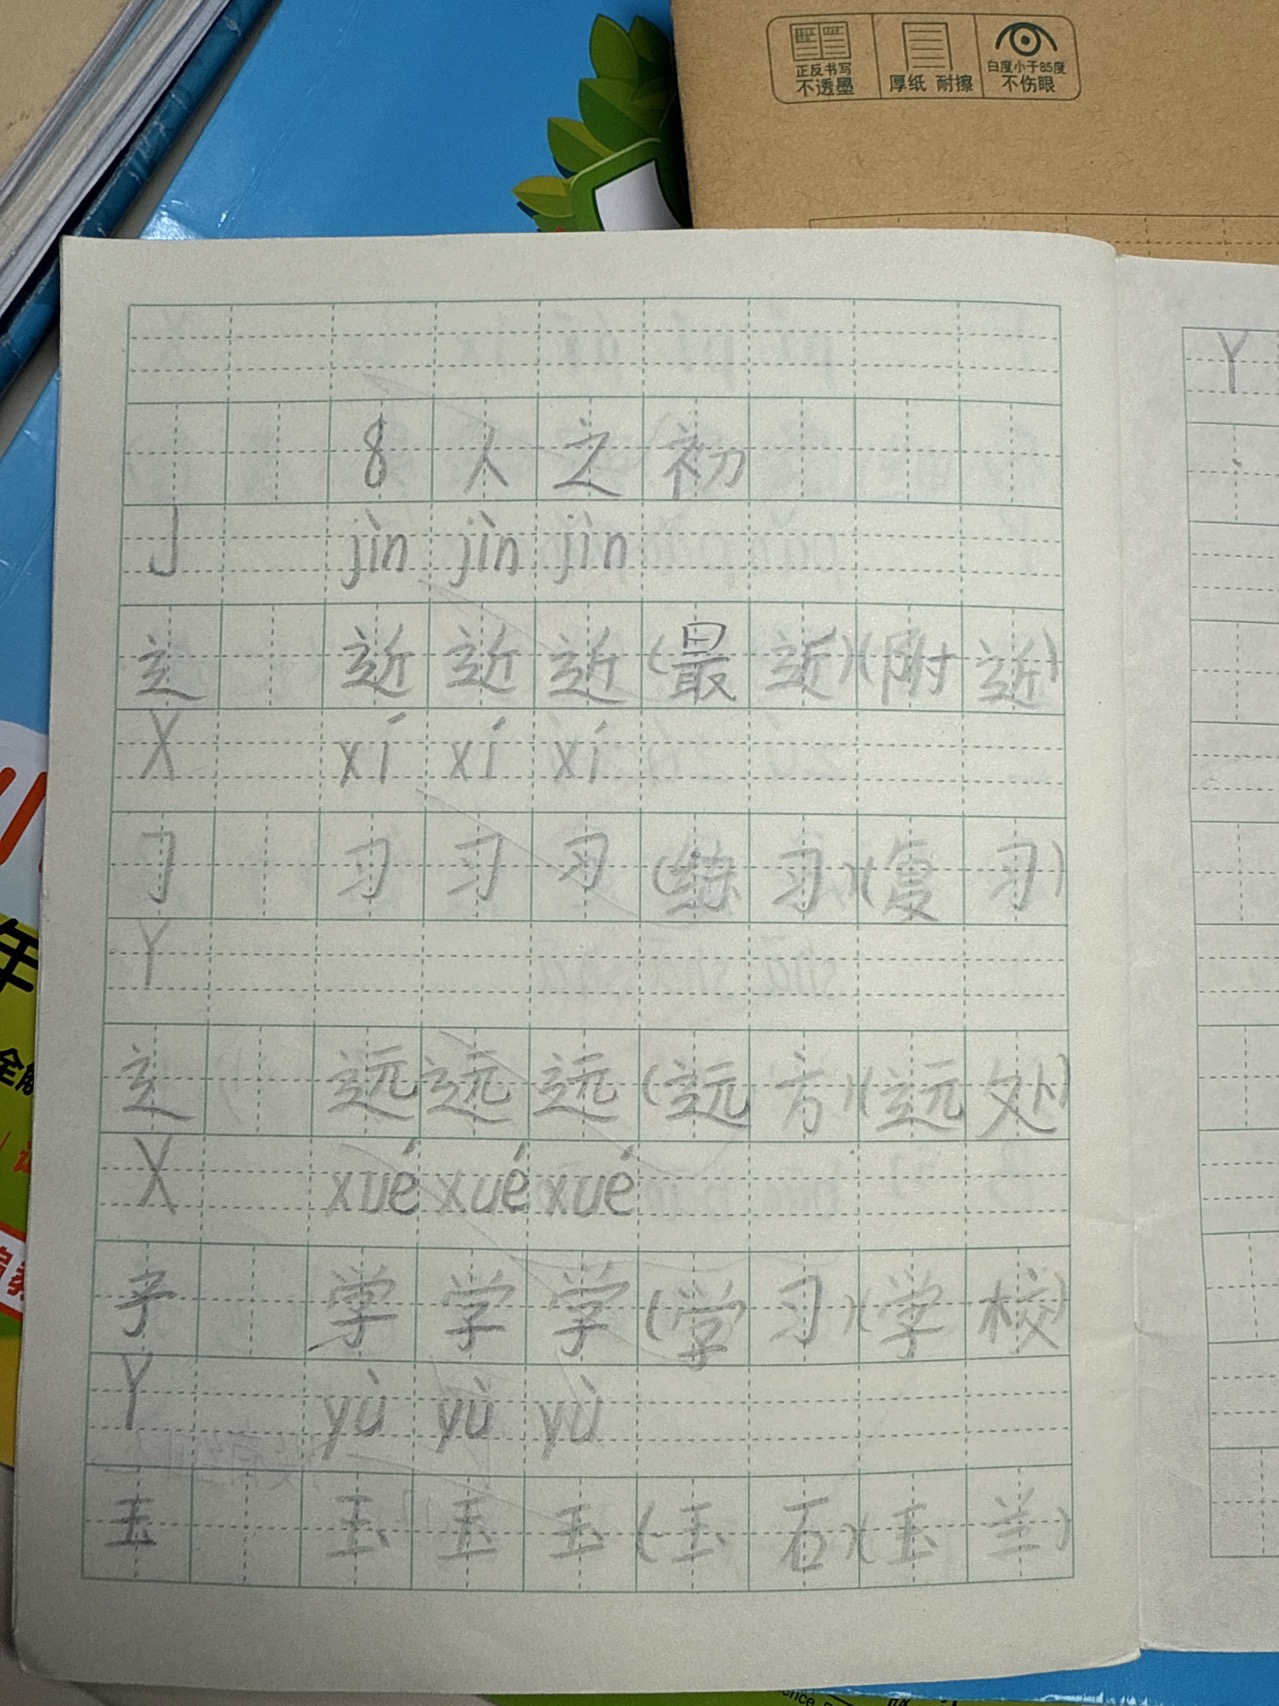 正反书写 不透墨
厚纸 耐擦
白度小于85度 不伤眼
8 人之初
J jìn jìn jìn
辶 近 近 近 (最近)(附近)
X xí xí xí
习 习 习 习 (练习)(复习)
Y
辶 远 远 远 (远方)(远处)
X xué xué xué
子 学 学 学 (学习)(学校)
Y yù yù yù
玉 玉 玉 玉 (玉石)(玉兰)
Y
年